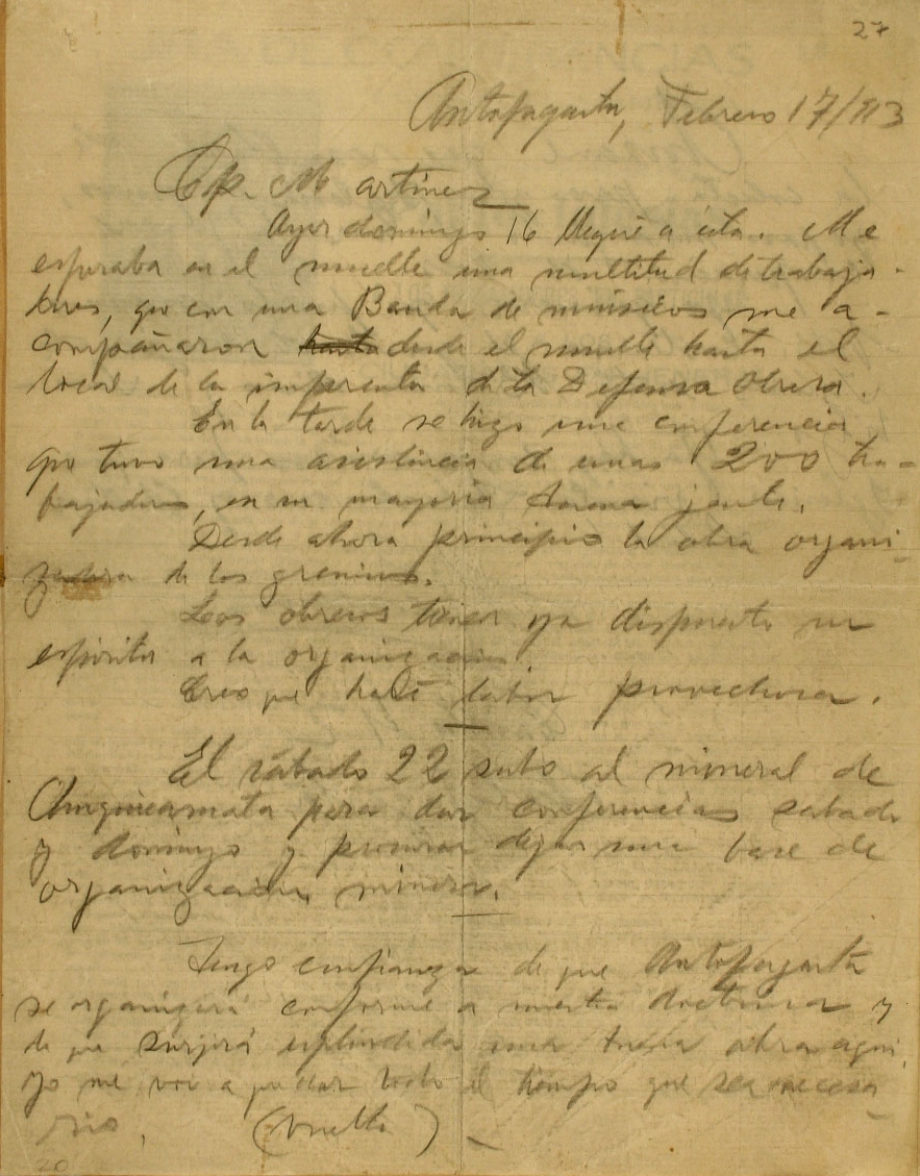 27
Antofagasta, Febrero 17/913
Cp. Martinez
Ayer domingo 16 llegué a ésta. Me
esperaba en el muelle una multitud de trabaja-
dores, que con una Banda de músicos me a-
compañaron hasta desde el muelle hasta el
local de la imprenta de la Defensa Obrera.
En la tarde se hizo una conferencia
que tuvo una asistencia de unas 200 tra-
bajadores, en su mayoria buena jente.
Desde ahora principio la obra organi-
zadora de los gremios.
Los obreros tienen ya dispuesto su
espiritu a la organizacion.
Creo que haré labor provechosa.
El sábado 22 subo al mineral de
Chuquicamata para dar conferencias sabado
y domingo y procurar dejar una base de
organización minera.
Tengo confianza de que Antofagasta
se organizará conforme a nuestra doctrina y
de que surjirá esplendida una nueva obra aqui.
Yo me voi a quedar todo el tiempo que sea necesa
rio. (Vuelta)
20